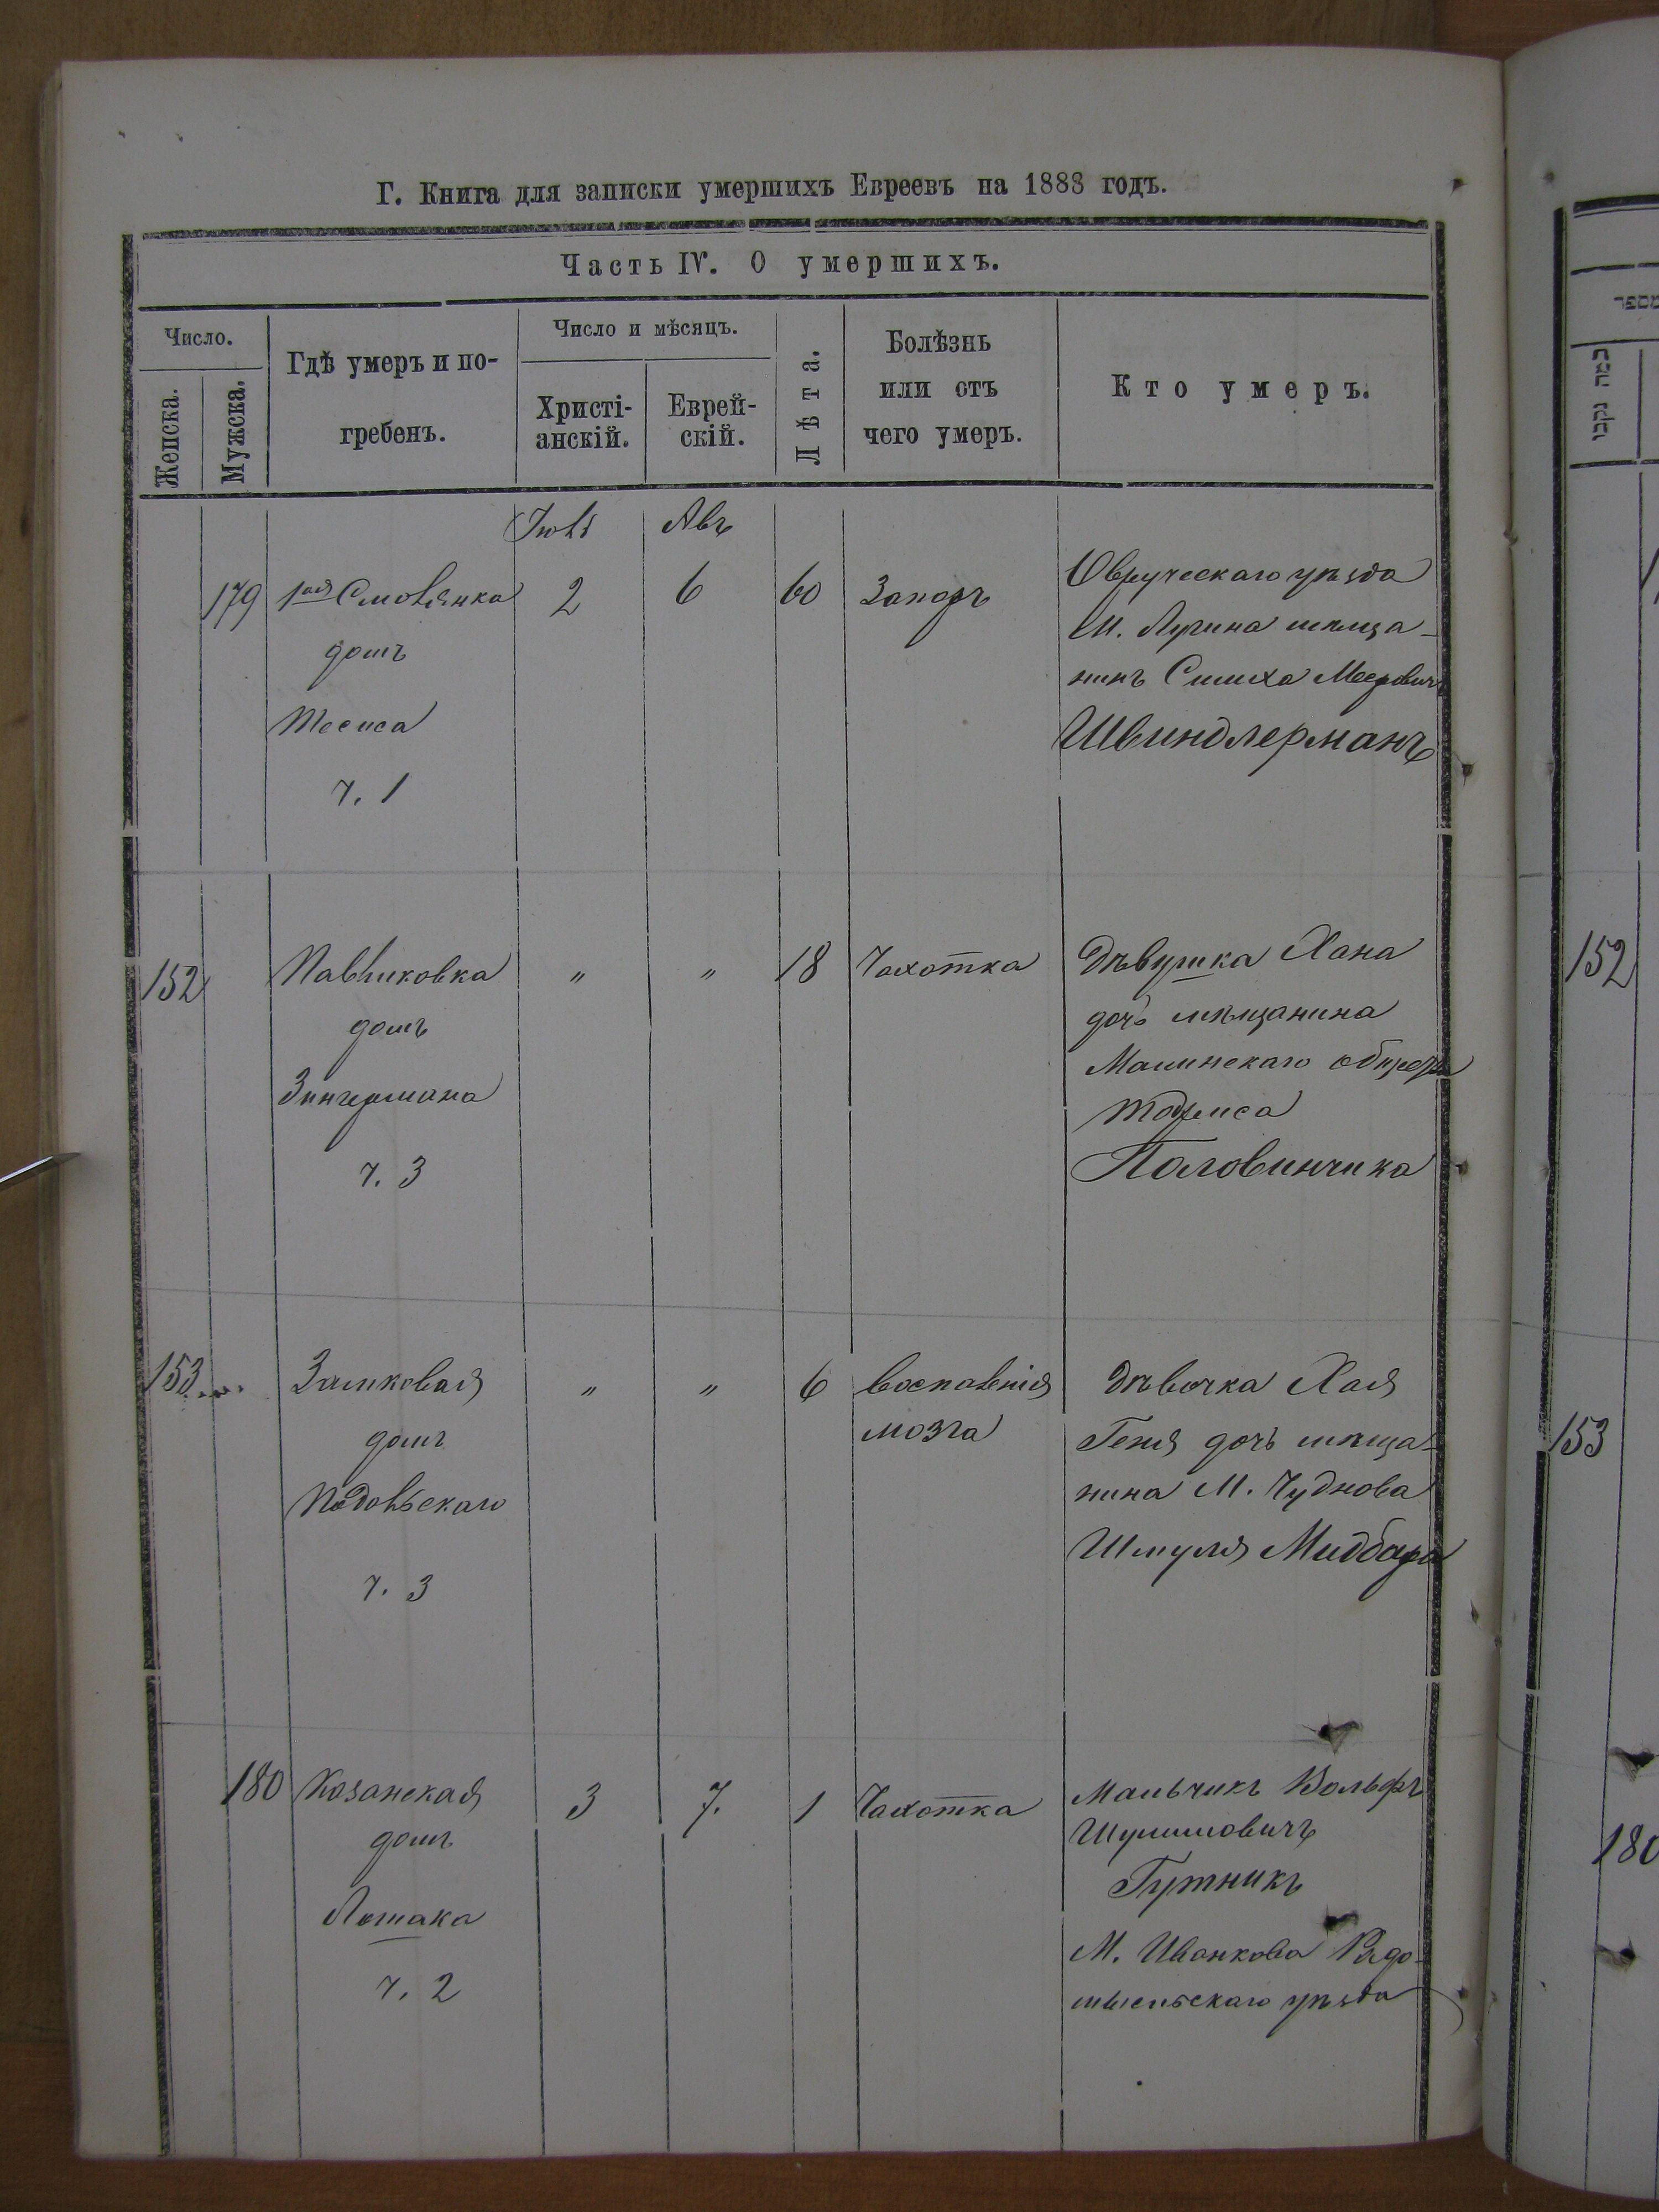 Г. Книга для записки умершихъ Евреевъ на 1888 годъ.
Часть IV. О умершихъ.
Число.
Женска.
Мужска.
Гдѣ умеръ и по-
гребенъ.
Число и мѣсяцъ.
Христі-
анскій.
Еврей-
скій.
Лѣта.
Болѣзнь
или отъ
чего умеръ.
Кто умеръ.
Іюль
Авъ
179
1ая Смолянка
домъ
Тесиса
ч. 1
2
6
60
Запоръ
Овруческаго уѣзда
М. Лугина мѣща-
нинъ Симха Меерович
Швиндлерманъ
152
Павликовка
домъ
Зингермана
ч. 3
"
"
18
Чахотка
Дѣвушка Хана
дочь мѣщанина
Малинскаго
Половинчика
152
153
Замковая
домъ
Подольскаго
ч. 3
"
"
6
воспаленія
мозга
Дѣвочка Хая
Геня дочь мѣща-
нина М. Чуднова
Шмуля Мидбара
153
180
Казанская
домъ
Лотака
ч. 2
3
7.
1
Чахотка
Мальчикъ Вольфъ
Шулимовичъ
Гутникъ
М. Иванкова Радо-
мысльскаго уѣзда
180